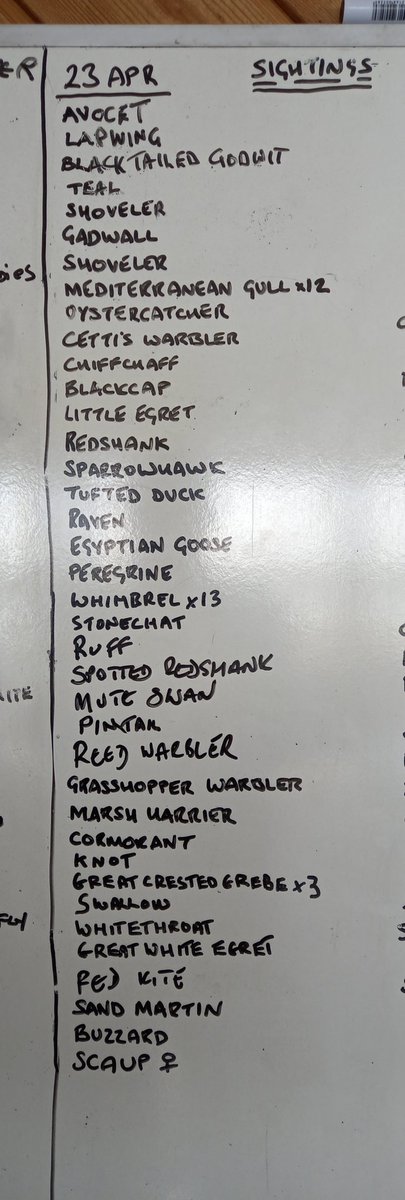 23 APR SIGHTINGS
AVOCET
LAPWING
BLACK TAILED GODWIT
TEAL
SHOVELER
GADWALL
SHOVELER
MEDITERRANEAN GULL x12
OYSTERCATCHER
CETTI'S WARBLER
CHIFFCHAFF
BLACKCAP
LITTLE EGRET
REDSHANK
SPARROWHAWK
TUFTED DUCK
RAVEN
EGYPTIAN GOOSE
PEREGRINE
WHIMBREL x13
STONECHAT
RUFF
SPOTTED REDSHANK
MUTE SWAN
PINTAIL
REED WARBLER
GRASSHOPPER WARBLER
MARSH HARRIER
CORMORANT
KNOT
GREAT CRESTED GREBE x3
SWALLOW
WHITETHROAT
GREAT WHITE EGRET
RED KITE
SAND MARTIN
BUZZARD
SCAUP ♀